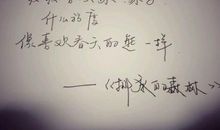 什么程度
像喜欢春天的熊一样
——《挪威的森林》